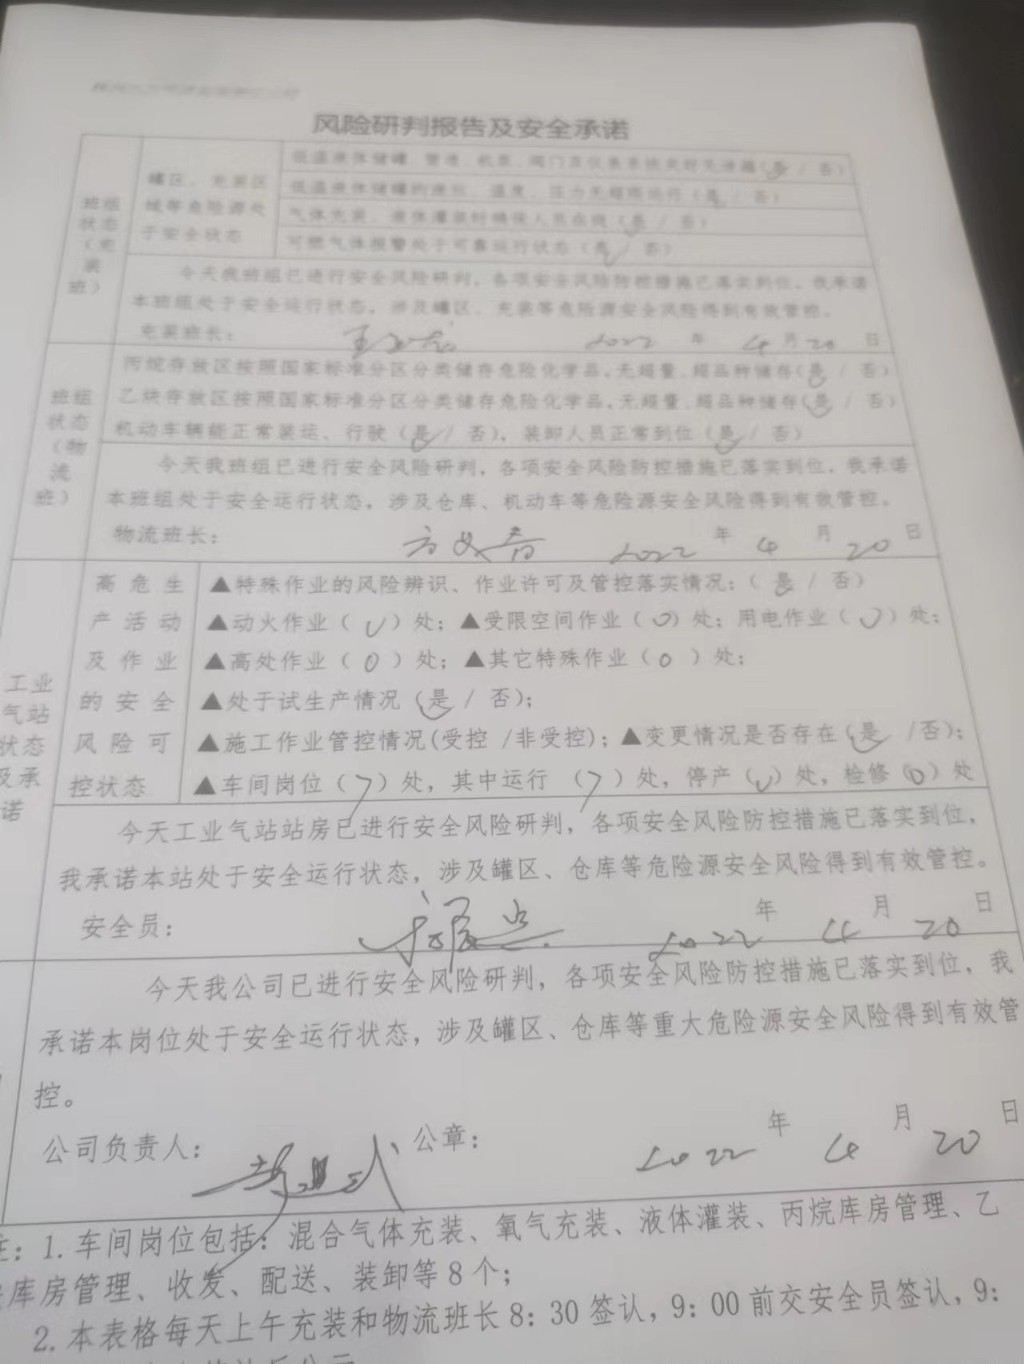 风险研判报告及安全承诺
班组状态（充装班）
罐区、充装区域等危险源处于安全状态
低温液体储罐、管道、机泵、阀门及仪表系统完好无泄漏（是 / 否）
低温液体储罐的液位、温度、压力无超限运行（是 / 否）
气体充装、液体灌装时确保人员在线（是 / 否）
可燃气体报警处于可靠运行状态（是 / 否）
今天我班组已进行安全风险研判，各项安全风险防控措施已落实到位，我承诺
本班组处于安全运行状态，涉及罐区、充装等危险源安全风险得到有效管控。
充装班长： 2022 年 4 月 20 日
班组状态（物流班）
丙烷存放区按照国家标准分区分类储存危险化学品，无超量、超品种储存（是 / 否）
乙炔存放区按照国家标准分区分类储存危险化学品，无超量、超品种储存（是 / 否）
机动车辆能正常装运、行驶（是 / 否），装卸人员正常到位（是 / 否）
今天我班组已进行安全风险研判，各项安全风险防控措施已落实到位，我承诺
本班组处于安全运行状态，涉及仓库、机动车等危险源安全风险得到有效管控。
物流班长： 2022 年 4 月 20 日
工业气站状态及承诺
高危生产活动及作业的安全风险可控状态
▲特殊作业的风险辨识、作业许可及管控落实情况：（ 是 / 否）
▲动火作业（ 0 ）处；▲受限空间作业（ 0 ）处；用电作业（ 0 ）处；
▲高处作业（ 0 ）处；▲其它特殊作业（ 0 ）处；
▲处于试生产情况（是 / 否）；
▲施工作业管控情况（受控 /非受控）；▲变更情况是否存在（是 /否）；
▲车间岗位（7）处，其中运行（7）处，停产（0）处，检修（0）处
今天工业气站站房已进行安全风险研判，各项安全风险防控措施已落实到位，
我承诺本站处于安全运行状态，涉及罐区、仓库等危险源安全风险得到有效管控。
安全员： 2022 年 4 月 20 日
今天我公司已进行安全风险研判，各项安全风险防控措施已落实到位，我
承诺本岗位处于安全运行状态，涉及罐区、仓库等重大危险源安全风险得到有效管
控。
公司负责人： 公章： 2022 年 4 月 20 日
注：1.车间岗位包括：混合气体充装、氧气充装、液体灌装、丙烷库房管理、乙
库房管理、收发、配送、装卸等8个；
2.本表格每天上午充装和物流班长8：30签认，9：00前交安全员签认，9：